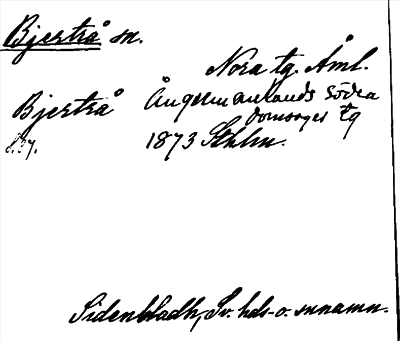 Bjertrå sn.
Nora tg. Åml.
Bjertrå Ångermanlands södra
domsagas tg
1873 Sthlm.
Sidenbladh, Sv. hds- o. snnamn.